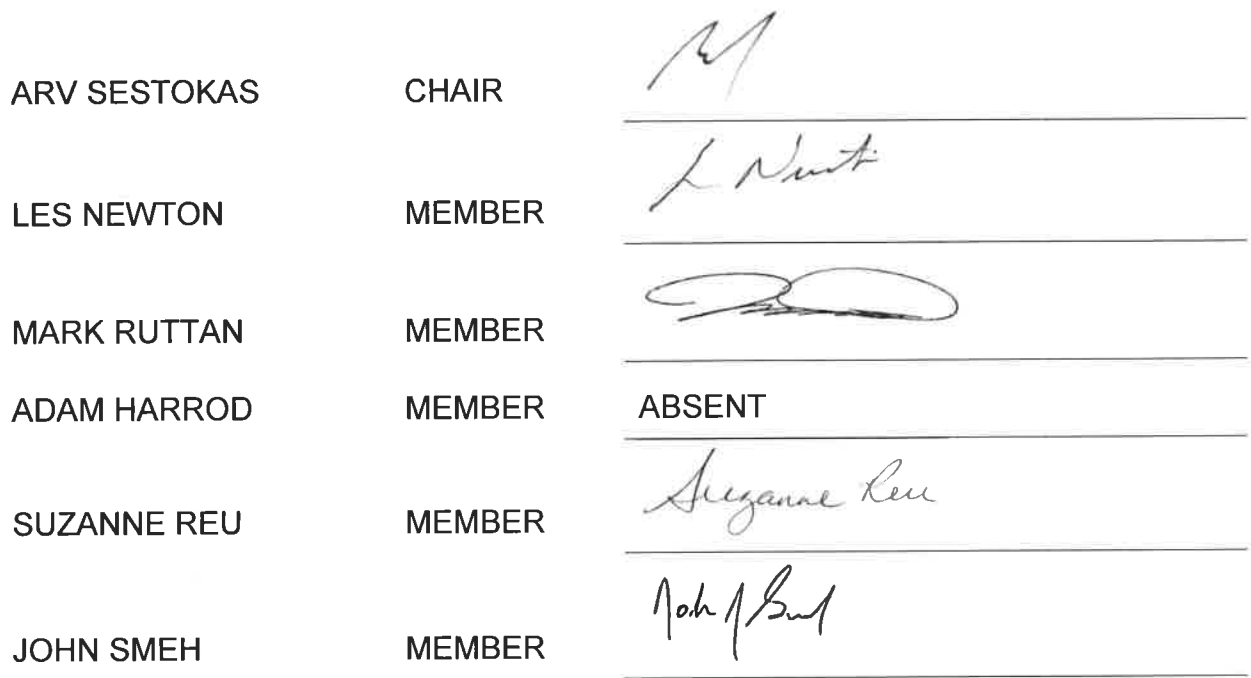 ARV SESTOKAS CHAIR
LES NEWTON MEMBER L Newton
MARK RUTTAN MEMBER
ADAM HARROD MEMBER ABSENT
SUZANNE REU MEMBER Suzanne Reu
JOHN SMEH MEMBER